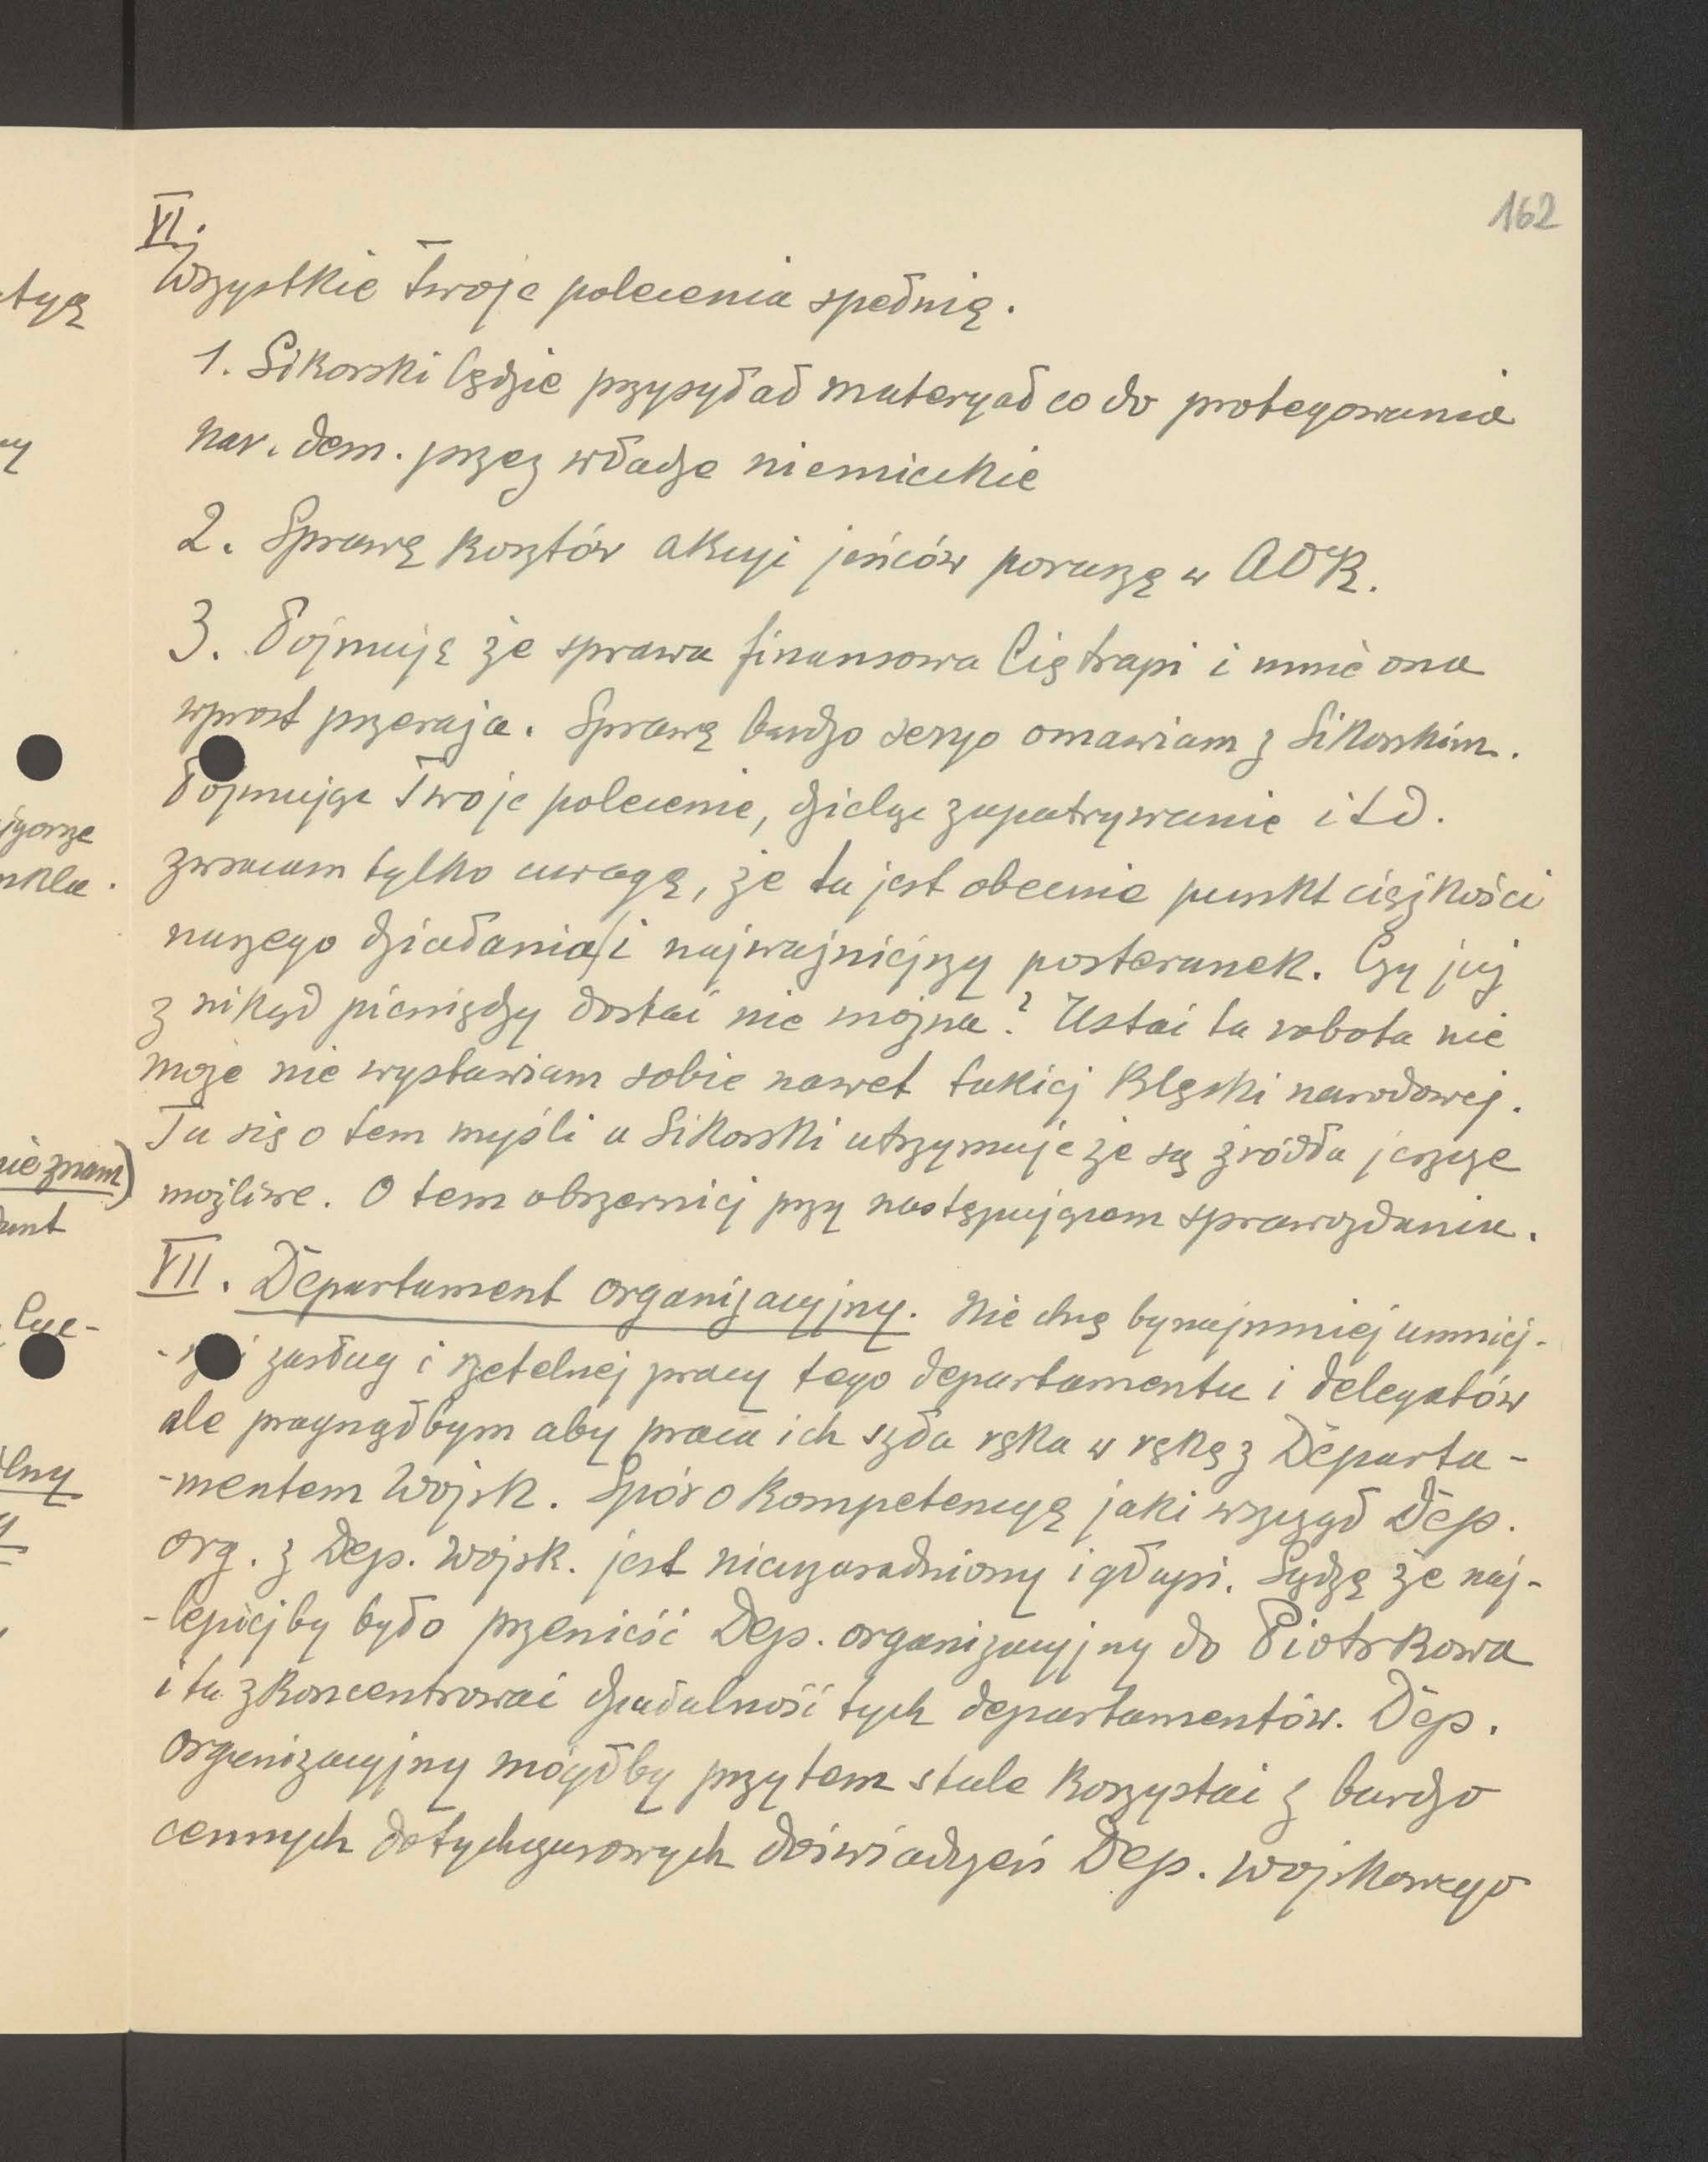 162
VI.
Wszystkie Twoje polecenia spełnię.
1. Sikorski będzie przysyłał materyał co do protegowania
nar. dem. przez władze niemieckie
2. Sprawę kosztów akcyi jeńców poruszę w AOK.
3. Pojmuję że sprawa finansowa Cię trapi i mnie ona
wprost przeraża. Sprawę bardzo seryo omawiam z Sikorskim.
Pojmując Twoje polecenie, dzieląc zapatrywanie itd.
zwracam tylko uwagę, że tu jest obecnie punkt ciężkości
naszego działania i najważniejszy posterunek. Czy już
z nikąd pieniędzy dostać nie można? Ustać ta robota nie
może nie wystawiam sobie nawet takiej klęski narodowej.
Tu się o tem myśli a Sikorski utrzymuje że są źródła jeszcze
możliwe. O tem obszerniej przy następującem sprawozdaniu.
VII. Departament organizacyjny. Nie chcę bynajmniej umniej-
zasług i rzetelnej pracy tego departamentu i delegatów
ale pragnąłbym aby praca ich szła ręka w rękę z Departa-
-mentem Wojsk. Spór o kompetencyę jaki wszczął Dep.
org. z Dep. Wojsk. jest nieuzasadniony i głupi. Sądzę że naj-
-lepiejby było przenieść Dep. organizacyjny do Piotrkowa
i tu zkoncentrować działalność tych departamentów. Dep.
organizacyjny mógłby przytem stale korzystać z bardzo
cennych dotychczasowych doświadczeń Dep. wojskowego
tyę
nkla.
nie znam)